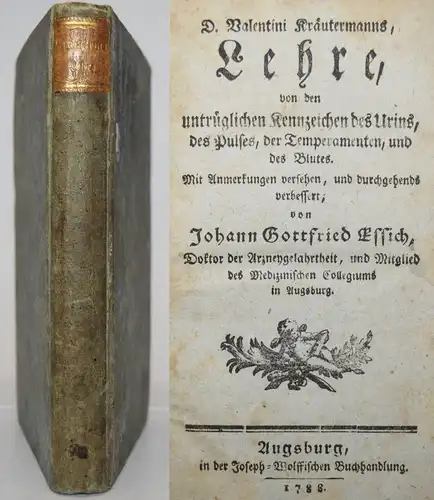 D. Valentini Kräutermanns,
Lehre,
von den
untrüglichen Kennzeichen des Urins,
des Pulses, der Temperamenten, und
des Blutes.
Mit Anmerkungen versehen, und durchgehends
verbessert,
von
Johann Gottfried Essich,
Doktor der Arzneygelahrtheit, und Mitglied
des Medizinischen Collegiums
in Augsburg.
Augsburg,
in der Joseph-Wolffischen Buchhandlung.
1788.